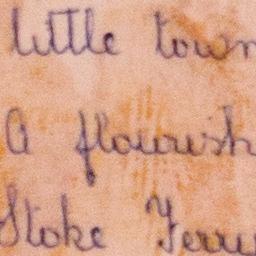 little town
A flourish
Stoke Ferry